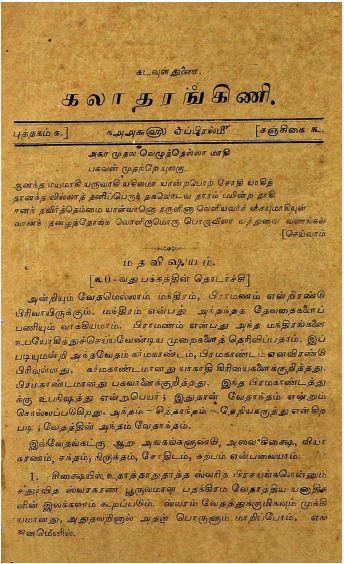 கடவுள் துணை.
கலாதரங்கிணி.
புத்தகம் க.] கஅஅசு௵ ஏப்பிரல்௴ [சஞ்சிகை ௩.
அகர முதல வெழுத்தெல்லா மாதி
பகவன் முதற்றே யுலகு.
ஆனந்த மயமாகி யருவாகி யகிலமா யான்றபொற் சோதி யாகித்
தானந்த வில்லாத் தனிப்பெருந் தகவொடவ தாரம் பயின்ற தாகி
வானக் தழைத்தோங்க வொளிருமொரு பொருவிலா
[செய்வாம்
மதவிஷயம்.
[௩0-வது பக்கத்தின் தொடர்ச்சி]
அன்றியும் வேதமெல்லாம் மந்திரம், பிராமணம் என்றிரண்டு
பிரிவாயிருக்கும். மந்திரம் என்பது அந்தந்தத் தேவதைகளைப்
பணியும் வாக்கியமாம். பிராமணம் என்பது அந்த மந்திரங்களை
உபயோகித்துச்செய்யவேண்டிய முறைகளைத் தெரிவிப்பதாம். இப்
படியுமன்றி அந்தவேதம் கர்மகாண்டம், பிரமகாண்டம் எனவிரண்டு
பிரிவுள்ளது. கர்மகாண்டமானது யாகாதி கிரியைகளைக்குறித்தது.
பிரமகாண்டமானது பகவானைக்குறித்தது. இந்த பிரமகாண்டத்து
க்கு உபநிஷத்து என்றுபெயர்; இதுதான் வேதாந்தம் என்றும்
சொல்லப்படுகிறது: அந்தம் - சித்தாந்தம் - தெளியகருத்து என்கிற
படி; வேதத்தின் அந்தம் வேதாந்தம்.
இவ்வேதங்கட்கு ஆறு அங்கங்களுண்டு, அவை சிக்ஷை, வியா
கரணம், சந்தம், நிருக்தம், சோதிடம், கற்பம் என்பவையாம்.
1. சிக்ஷையில் உதாத்தாநுதாத்த ஸ்வரித பிரசயங்களென்னும்
சதுர்வித ஸ்வரகரண பூருவமான பதக்கிரம வேதாத்திய
னின் இலக்கணம் கூறப்படும். ஸ்வரம் வேதத்துக்குமிகவும் முக்கி
யமானது, அதுதவறினால் அதன் பொருளும் மாறிப்போம். எங்
ஙனமெனில்.